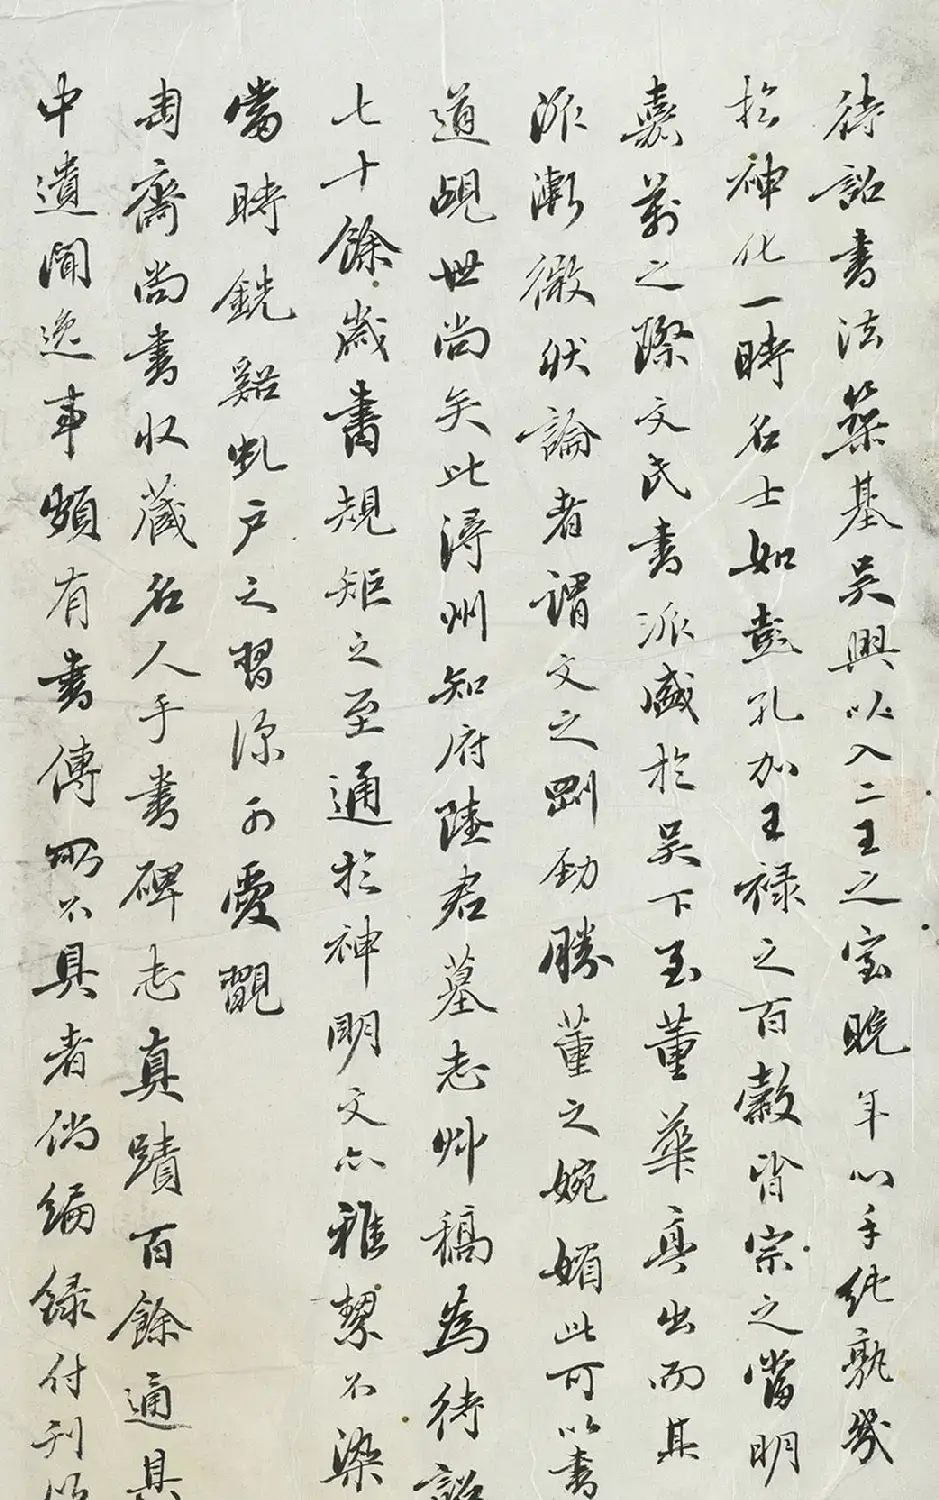 待詔書法築基吳興以入二王之室晚年心手純孰幾
於神化一時名士如彭孔加王祿之百穀皆宗之當明
嘉萬之際文氏書派盛於吳下至董華亭出而其
派漸微狀論者謂文之剛勁勝董之婉媚此可以書
道覘世尚矣此潯州知府陸君墓志艸稿為待詔
七十餘歲書規矩之至通於神明文亦雅絜不染
當時銑谿虬戶之習洵可愛翫
匋齋尚書收藏名人手書碑志真蹟百餘通具
中遺聞逸事頗有書傳所不具者倘編錄付刊以